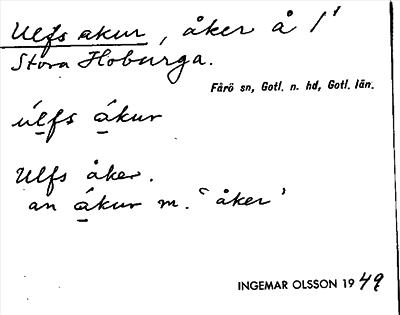 Ulfs akur, åker å 1/1
Stora Hoburga.
Fårö sn, Gotl. n. hd, Gotl. län.
úlfs ákur
Ulfs åker.
an ákur m. 'åker'
INGEMAR OLSSON 1949